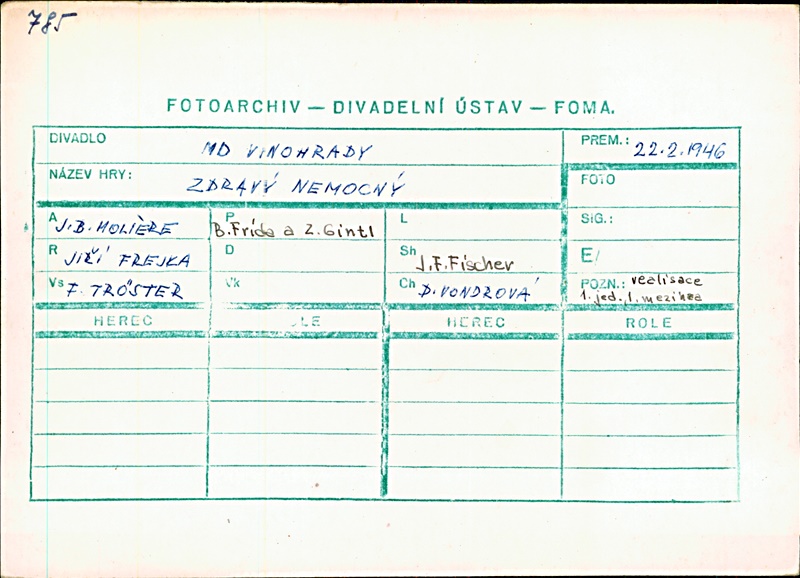 785
FOTOARCHIV — DIVADELNÍ ÚSTAV — FOMA.
DIVADLO MD VINOHRADY PREM.: 22.2.1946
NÁZEV HRY: ZDRAVÝ NEMOCNÝ FOTO
A J.B. MOLIÈRE P B. Frída a Z. Gintl L SIG.:
R JIŘÍ FREJKA D Sh J.F. Fischer E/
Vs F. TRÖSTER Vk Ch D. VONDROVÁ POZN.: realisace
1. jed. 1. mezihra
HEREC LE HEREC ROLE